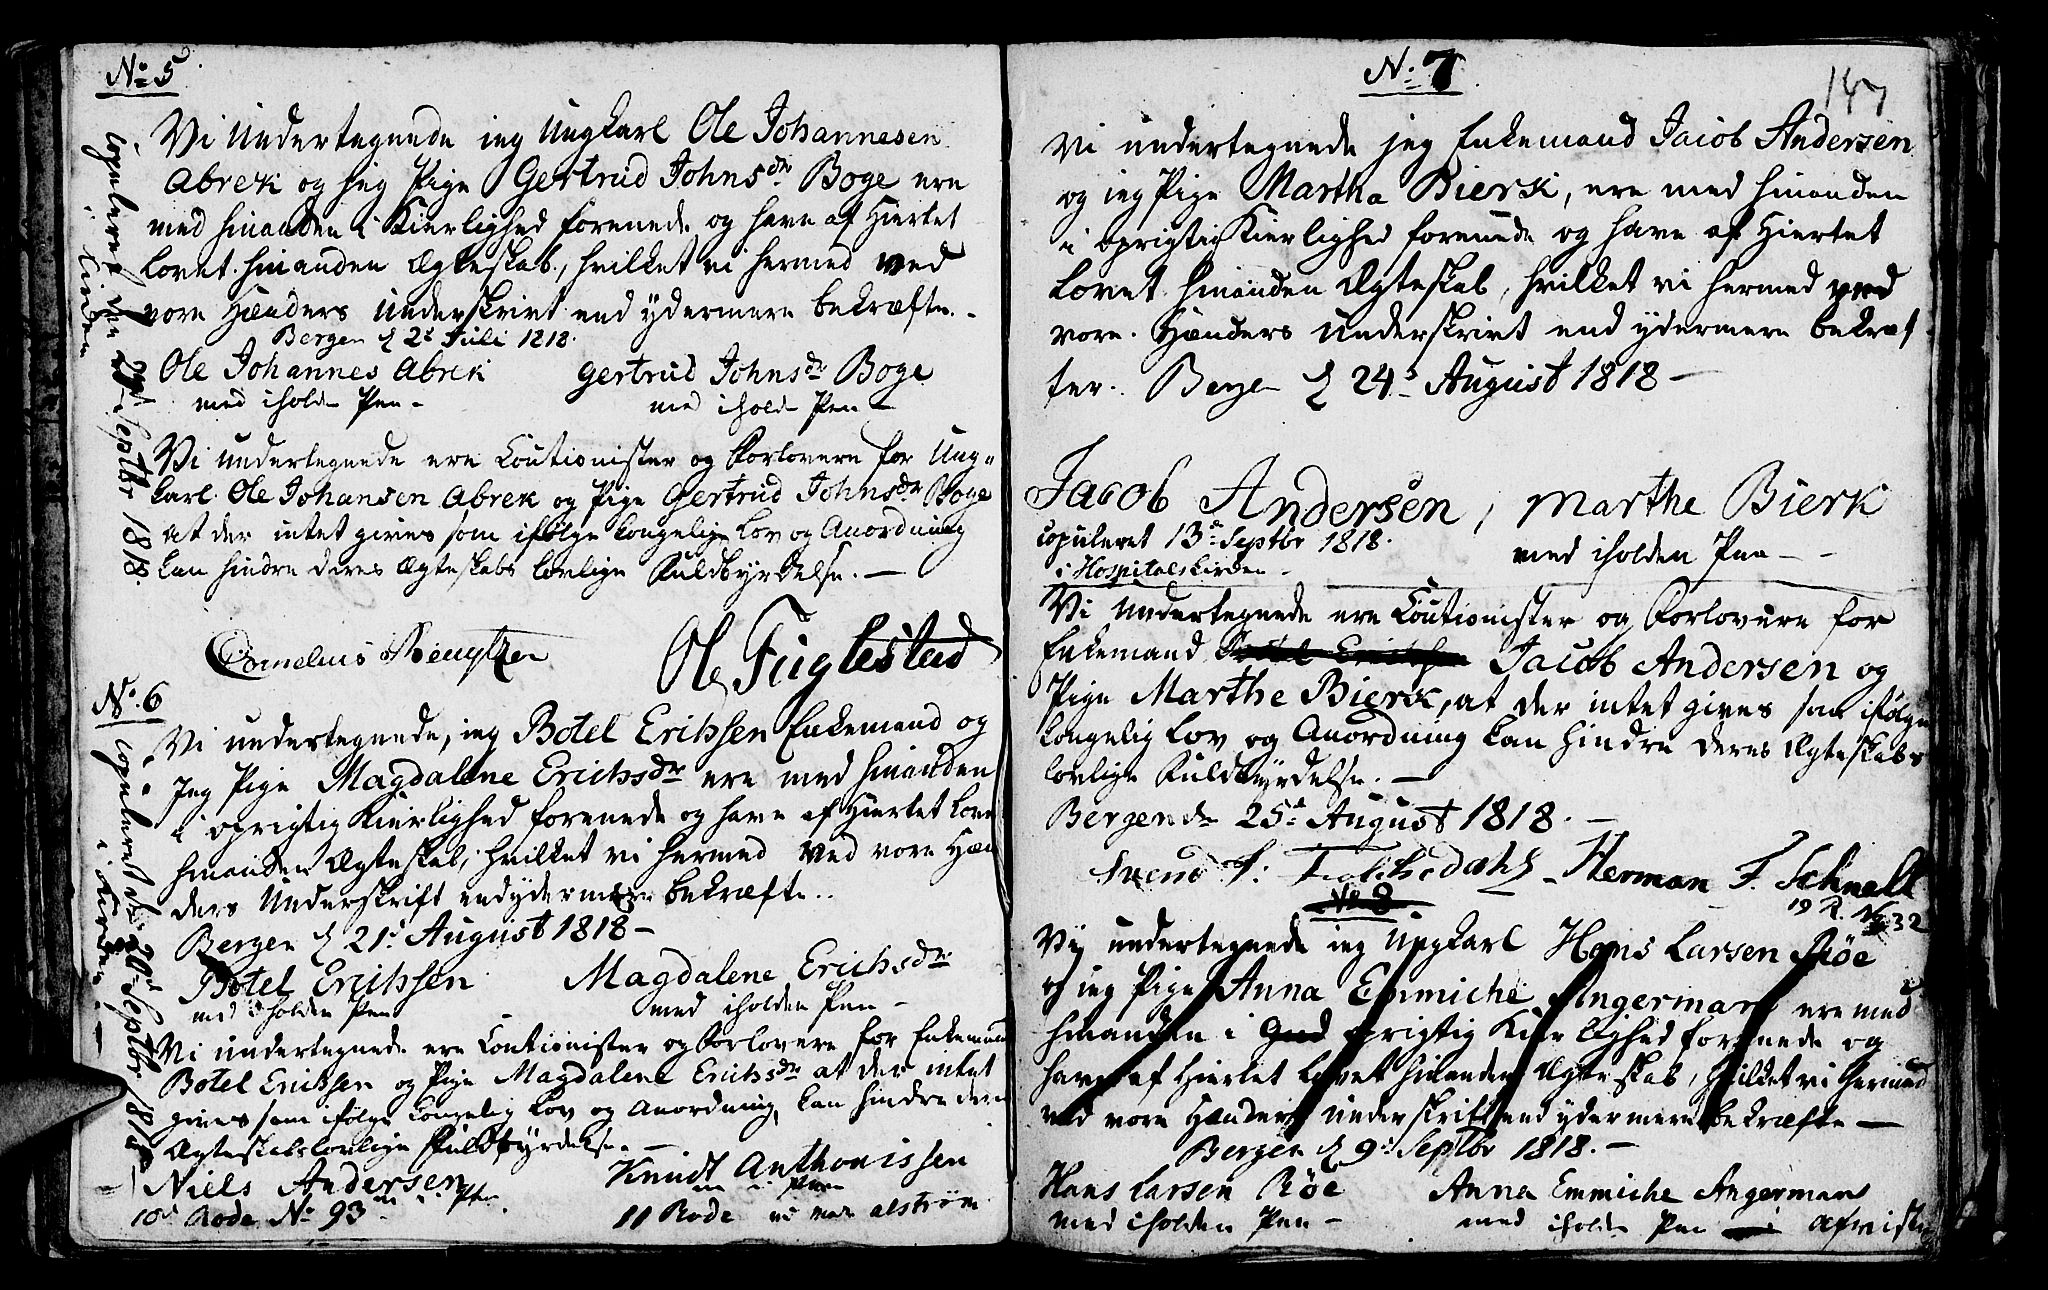 No 5
Vi Undertegnede ieg Ungkarl Ole Johannesen
Abrek og jeg Pige Gertrud Johnsdr Boge ere
med hinanden i Kierlighed forenede og have af Hiertet
Lovet hinanden Ægteskab, hvilket vi hermed ved
vore Hænders Underskrivt end ydermere bekræfte.-
Bergen d 2d Juli 1818.
Ole Johannes Abrek Gertrud Johnsdr Boge
med iholden Pen- med iholden Pen-
Vi undertegnede ere Coutionister og Forlovere for Ung=
karl Ole Johansen Abrek og Pige Gertrud Johnsdr Boge
at der intet gives som ifølge Kongelige Lov og Anordning
kan hindre deres Ægteskabs lovlige Fuldbyrdelse.-
Cornelius Ole Fuglestad
copuleret den 29d Septbr 1818.
i kirken
No. 6
Vi undertegnede, ieg Botel Erichsen Enkemand og
Jeg Pige Magdalene Erichsdr ere med hinanden
i oprigtig Kierlighed forenede og have af Hiertet love
hinanden Ægteskab, hvilket vi hermed ved vore Hæn
ders Underskrift endydermere bekræfte..
Bergen d 21d August 1818-
Botel Erichsen Magdalene Erichsdr
med iholden Pen med iholden Pen-
Vi undertegnede ere Coutionister og Forlovere for Enkemand
Botel Erichsen og Pige Magdalene Erichsdr at der intet
gives som ifølge Kongelig Lov og Anordning, kan hindre deres
Ægteskabs lovlige Fuldbyrdelse.-
Niels Andersen Knudt Anthonissen
m i Pen m i Pen
10d Rode No 93 11 Rode alstrøm
copuleret d. 20d Septbr 1818
i kirken-
147
No. 7
Vi undertegnede jeg Enkemand Jacob Andersen
og ieg Pige Martha Bierk, ere med hinanden
i oprigtig Kierlighed forenede og have af Hiertet
Lovet hinanden Ægteskab, hvilket vi hermed ved
vore Hænders Underskrivt end ydermere bekræf
ter. Bergen d 24d August 1818-
Jacob Andersen, Marthe Bierk
copuleret 13d Septbr 1818. med iholden Pen--
i Hospitalskirken-
Vi Undertegnede ere Coutionister og Forlovere for
Enkemand Botel Erichsen Jacob Andersen og
Pige Marthe Bierk, at der intet gives som ifølge
Kongelig Lov og Anordning kan hindre deres Ægteskabs
lovlige Fuldbyrdelse.-
Bergen d 25d August 1818.-
Svend Herman F. Schnell
19 R. No 32
No 8
Vi undertegnede ieg Ungkarl Hans Larsen Røe
og ieg Pige Anna Emmiche Angermans ere med
hinanden i Gud oprigtig Kierlighed forenede og
have af Hiertet Lovet hinanden Ægteskab, hvilket vi hermed
ved vore Hænders Underskrift end ydermere bekræfte-
Bergen d 9d Septbr 1818.-
Hans Larsen Røe Anna Emmiche Angermans
med iholden Pen- med iholden Pen afvist